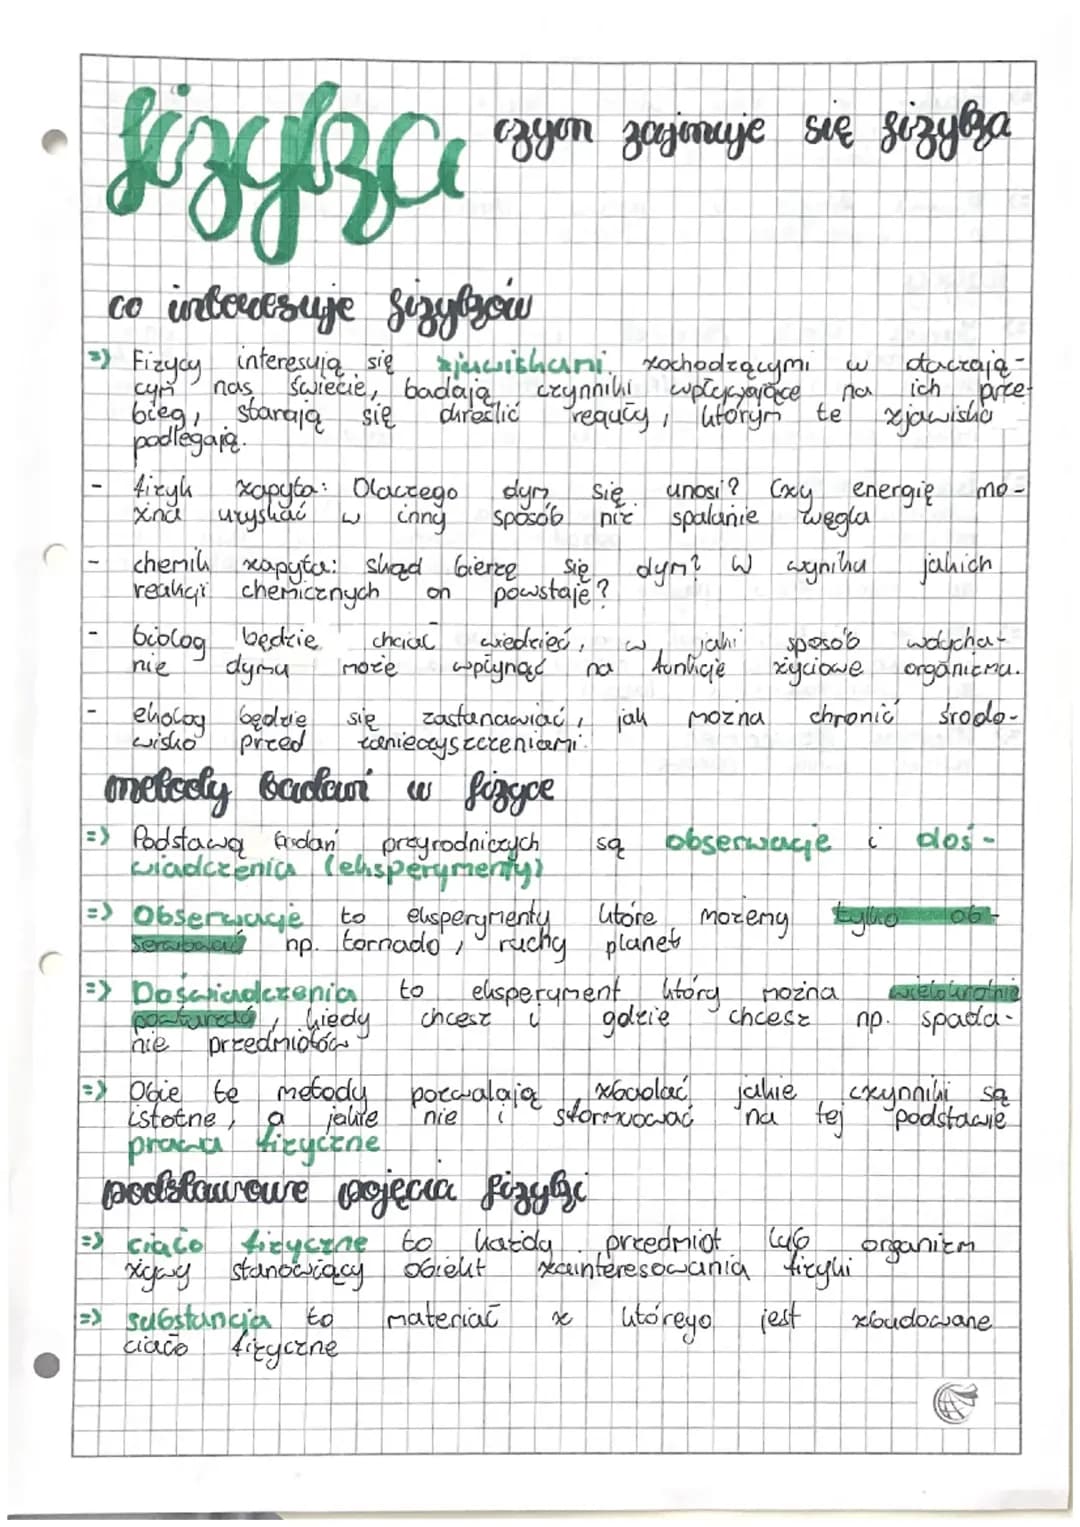 fizyka
czym zajmuje się fizyka
co interesuje fizyków
=> Fizycy interesują się zjawiskami zachodzącymi w otaczają-
cym nas świecie, badają czynniki wpływające na ich prze-
bieg, starają się określić reguły, którym te zjawiska
podlegają.
- fizyk zapyta: Dlaczego dym się unosi? Czy energię mo-
żna uzyskać w inny sposób niż spalanie węgla
- chemik zapyta: skąd bierze się dym? W wyniku jakich
reakcji chemicznych on powstaje?
- biolog będzie chciał wiedzieć, w jaki sposób wdycha-
nie dymu może wpłynąć na funkcje życiowe organizmu.
- ekolog będzie się zastanawiać, jak można chronić środo-
wisko przed zanieczyszczeniami.
metody badań w fizyce
=> Podstawą badań przyrodniczych są obserwacje i doś-
wiadczenia (eksperymenty)
=> Obserwacje to eksperymenty które możemy tylko ob-
serwować np. tornado, ruchy planet
=> Doświadczenia to eksperyment który można wielokrotnie
powtarzać, kiedy chcesz i gdzie chcesz np. spada-
nie przedmiotów
=> Obie te metody pozwalają zbadać jakie czynniki są
istotne, a jakie nie i sformuować na tej podstawie
prawa fizyczne
podstawowe pojęcia fizyki
=> ciało fizyczne to każdy przedmiot lub organizm
żywy stanowiący obiekt zainteresowania fizyki
=> substancja to materiał z którego jest zbudowane
ciało fizyczne